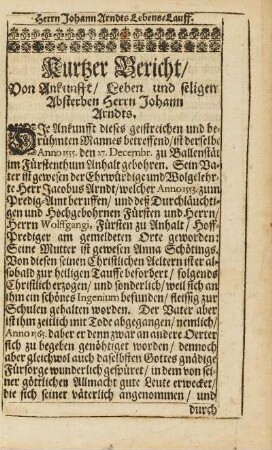 Herrn Johann Arndts Lebens-Lauff.
Kurtzer Bericht/
Von Ankunfft/ Leben und seligen
Absterben Herrn Johann
Arndts.
DIe Ankunfft dieses geistreichen und be-
rühmten Mannes betreffend/ ist derselbe
Anno 1555. den 27. Decembr. zu Ballenstät
im Fürstenthum Anhalt gebohren. Sein Va-
ter ist gewesen der Ehrwürdige und Wolgelehr-
te Herr Jacobus Arndt/ welcher Anno 1553. zum
Predig-Amt beruffen/ und deß Durchläuchti-
gen und Hochgebohrnen Fürsten und Herrn/
Herrn Wolffgangi, Fürsten zu Anhalt/ Hoff-
Prediger am gemeldeten Orte geworden:
Seine Mutter ist gewesen Anna Schötings.
Von diesen seinen Christlichen Aeltern ist er al-
sobald zur heiligen Tauffe befordert/ folgends
Christlich erzogen/ und sonderlich/ weil sich an
ihm ein schönes Ingenium befunden/ fleissig zur
Schulen gehalten worden. Der Vater aber
ist ihm zeitlich mit Tode abgegangen/ nemlich/
Anno 1565. daher er denn zwar an andere Oerter
sich zu begeben genöhtiget worden/ dennoch
aber gleichwol auch daselbsten Gottes gnädige
Fürsorge wunderlich gespüret/ in dem von sei-
ner göttlichen Allmacht gute Leute erwecket/
die sich seiner väterlich angenommen/ und
durch